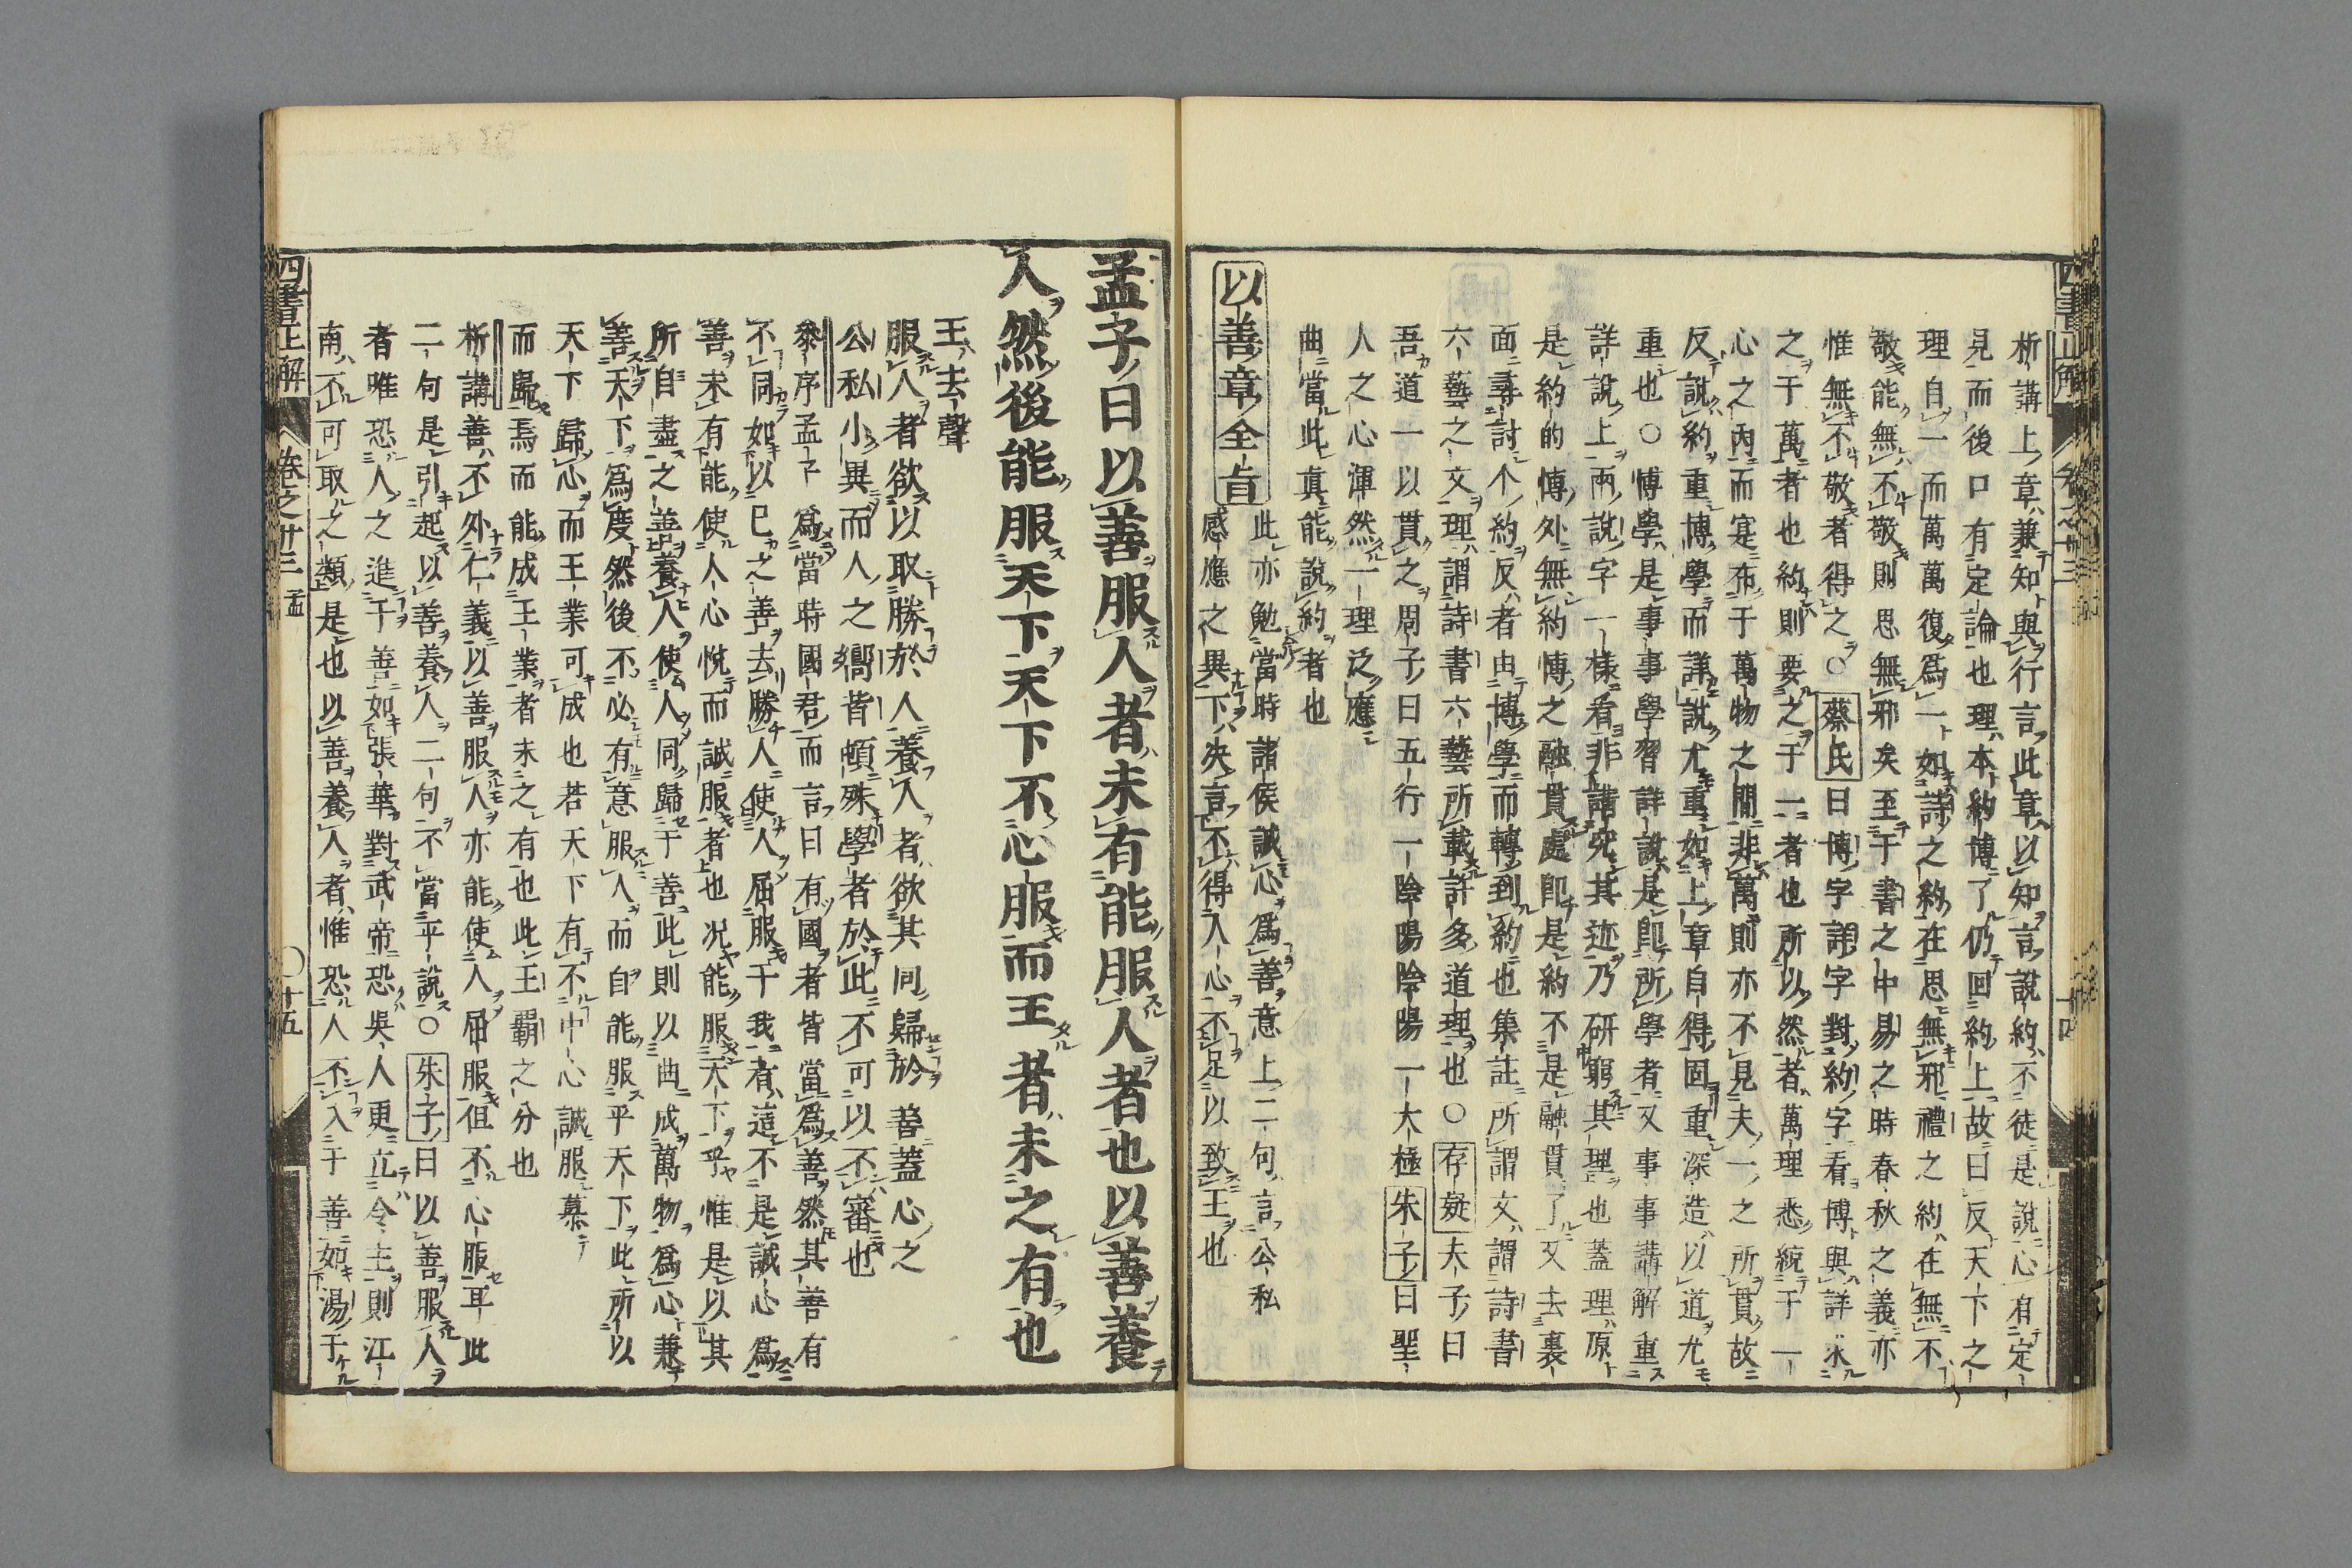 析講上章兼知與行言此章以知言說約不徒是說心有定
見而後口有定論也理本約博了仍回約上故曰反天下之
理自一而萬萬復爲一如詩之約在思無邪禮之約在無不
敬能無不敬則思無邪矣至于書之中易之時春秋之義亦
惟無不敬者得之○蔡氏曰博字詳字對約字看博與詳求
之于萬者也約則要之于一者也所以然者萬理悉統于一
心之內而寔布于萬物之間非萬則亦不見夫一之所貫故
反說約重博學而詳說尤重如上章自得固重深造以道尤
重也○博學是事事學習詳說是卽所學者又事事講解重
詳說上兩說字一樣看非講究其迹乃研窮其理也蓋理原
是約的博外無約約博之融貫處卽是約不是融貫了又去裏
面尋討个約反者由博學而轉到約也集註所謂文謂詩書
六藝之文理謂詩書六藝所載許多道理也○存疑夫子曰
吾道一以貫之周子曰五行一陰陽陰陽一大極朱子曰聖
人之心渾然一理泛應
曲當此真能說約者也
以善章全旨
此亦勉當時諸侯誠心爲善意上二句言公私
感應之異下決言不得人心不足以致王也
四書正解 卷之十三 十四
孟子曰以善服人者未有能服人者也以善養
人然後能服天下天下不心服而王者未之有也
王去聲
服人者欲以取勝於人養人者欲其同歸於善蓋心之
公私小異而人之嚮背頓殊學者於此不可以不審也
黍序孟子爲當時國君而言曰有國者皆當爲善然其善有
不同如以己之善去勝人使人屈服于我者這不是誠心爲
善未有能使人心悅而誠服者也况能服天下乎惟是以其
所自盡之善養人使人同歸于善此則以曲成萬物爲心兼
善天下爲度然後不必有意服人而自能服乎天下此所以
天下歸心而王業可成也若天下有不中心誠服慕
而歸焉而能成王業者未之有也此王霸之分也
析講善不外仁義以善服人亦能使人屈服但不心服耳此
二句是引起以善養人二句不當平說○朱子曰以善服人
者唯恐人之進于善如張華對武帝恐吳人更立令主則江
南不可取之類是也以善養人者惟恐人不入于善如湯于
四書正解 卷之十三 孟 ○十五